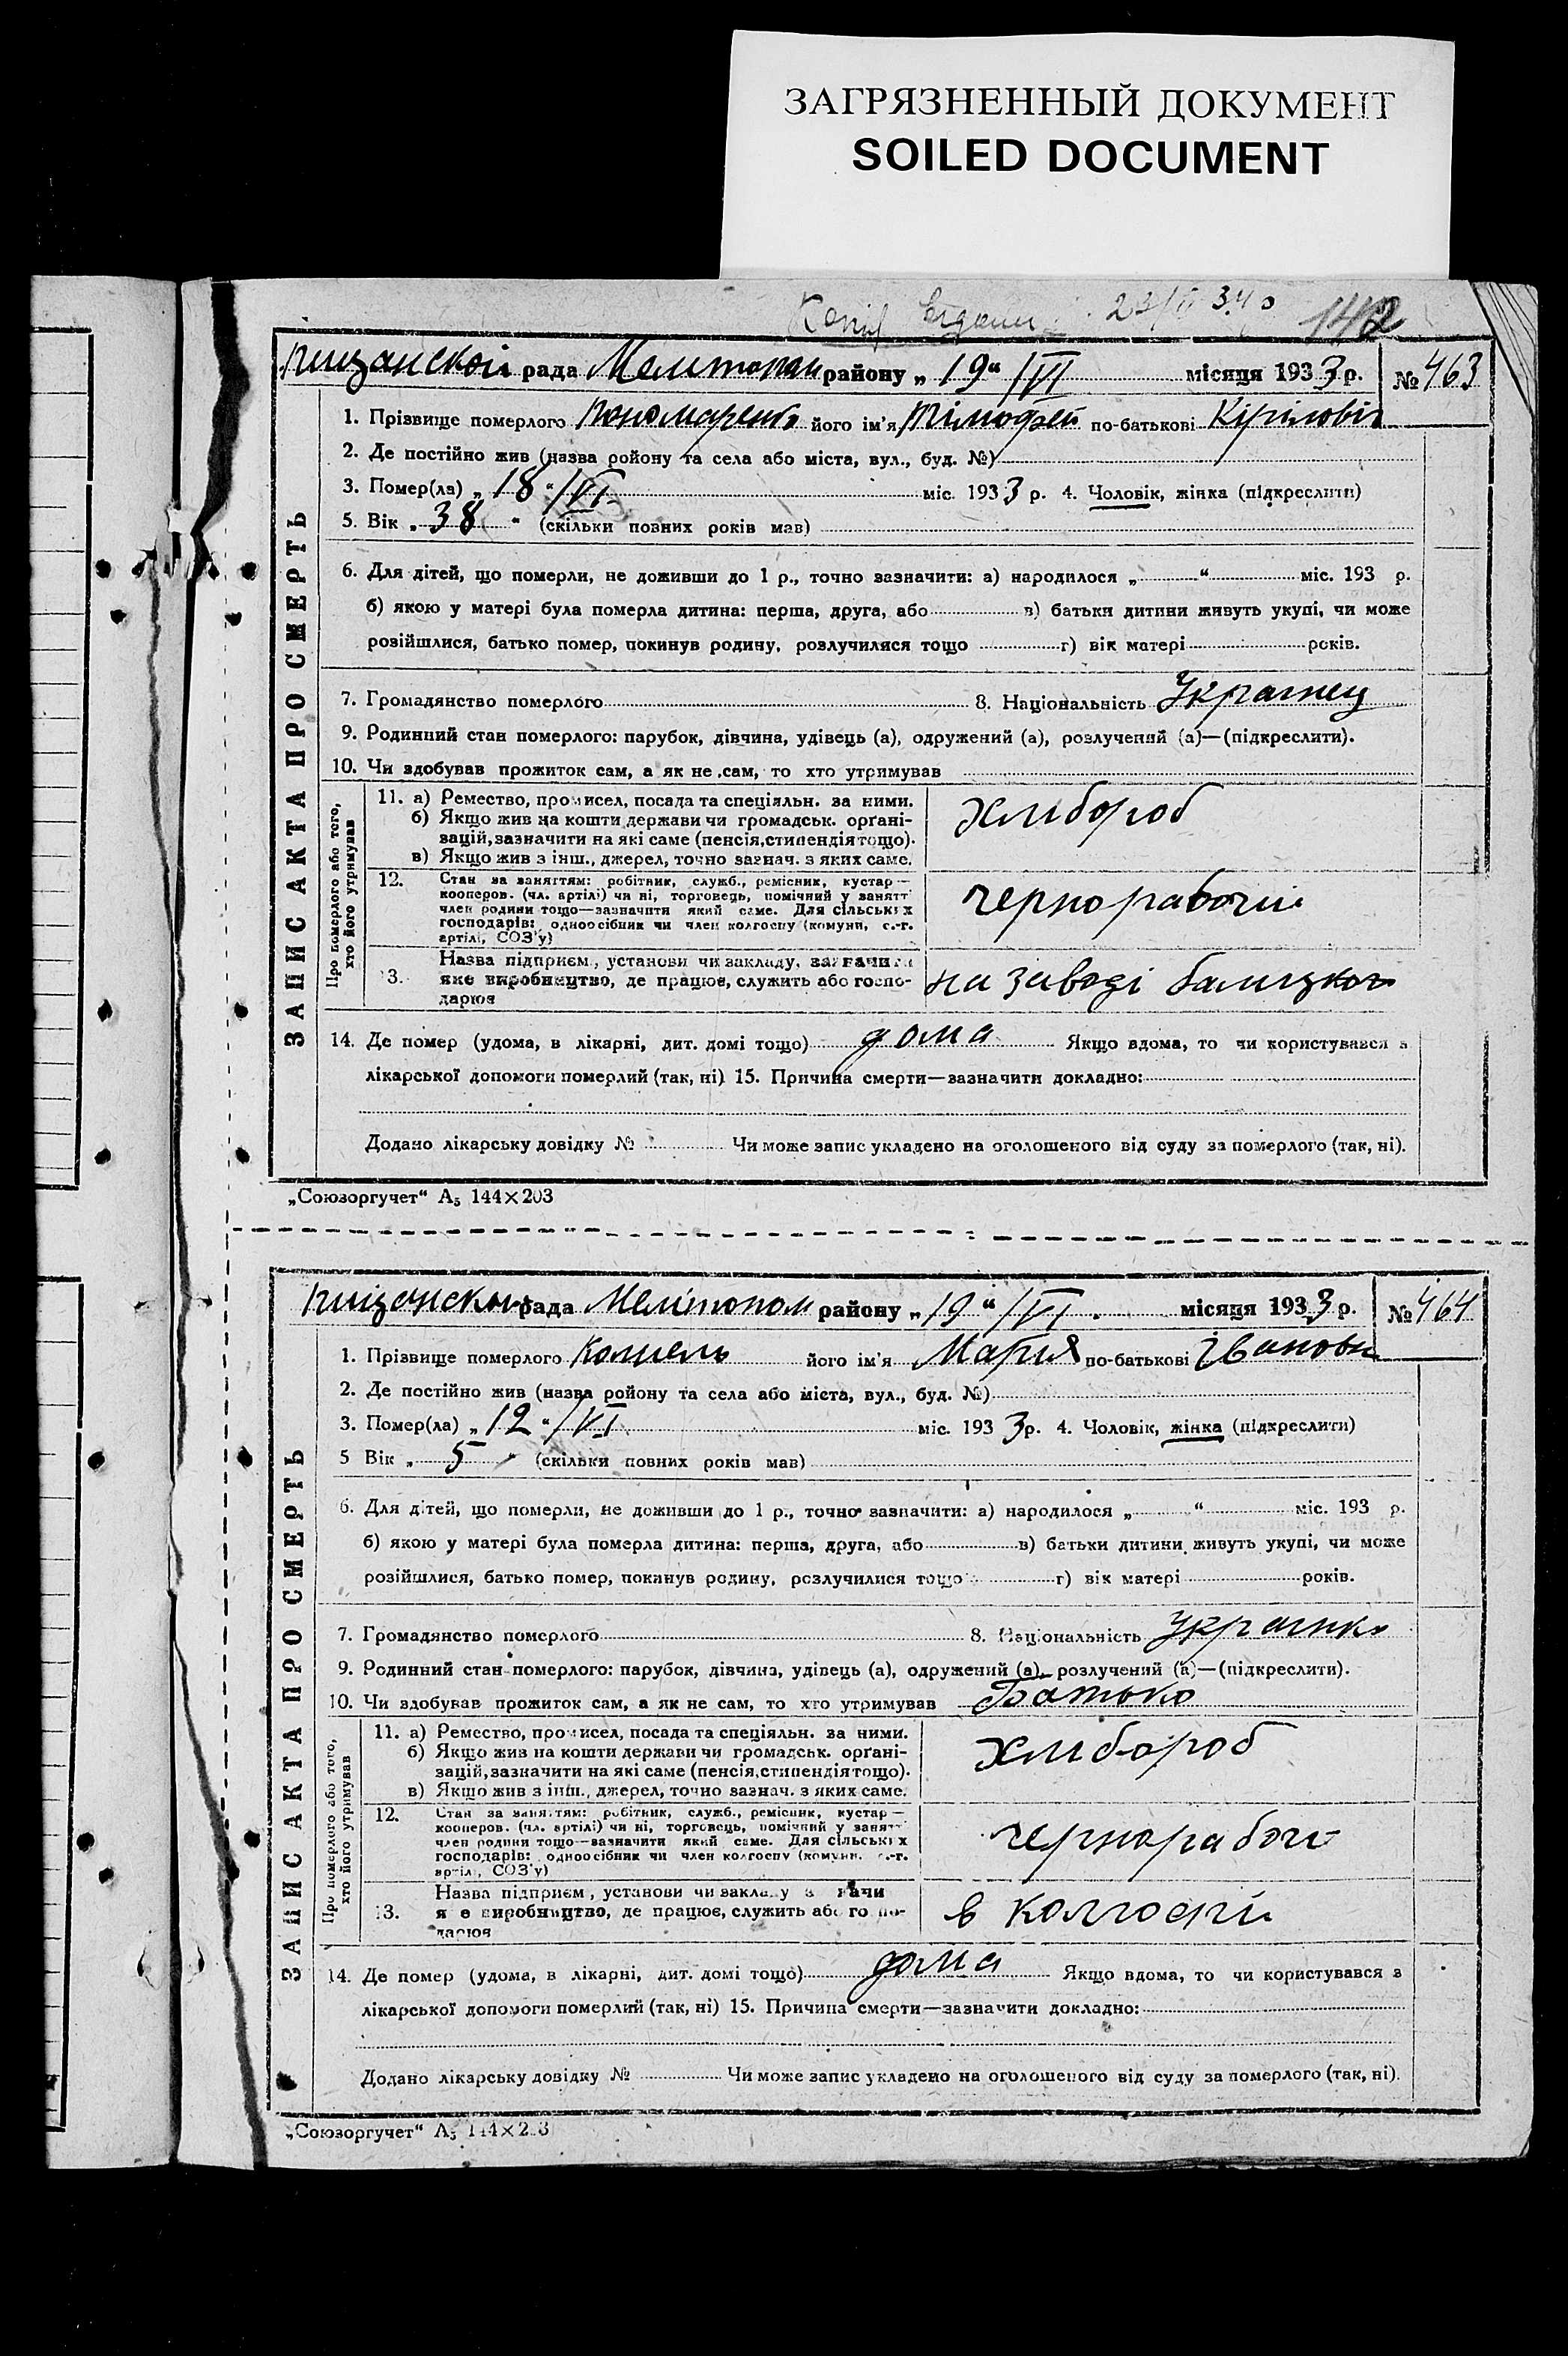 ЗАГРЯЗНЕННЫЙ ДОКУМЕНТ
SOILED DOCUMENT
142
рада Мелитопол району „19“ /VI місяця 1933 р. № 463
ЗАПИС АКТА ПРО СМЕРТЬ
1. Прізвище померлого Пономаренко його ім'я Тімофей по-батькові Кіріловіч
2. Де постійно жив (назва району та села або міста, вул., буд. №)
3. Помер(ла) „18“ /VI міс. 1933 р. 4. Чоловік, жінка (підкреслити)
5. Вік „38“ (скільки повних років мав)
6. Для дітей, що померли, не доживши до 1 р., точно зазначити: а) народилося „ “ міс. 193 р.
б) якою у матері була померла дитина: перша, друга, або в) батьки дитини живуть укупі, чи може
розійшлися, батько помер, покинув родину, розлучилися тощо г) вік матері років.
7. Громадянство померлого 8. Національність Украинец
9. Родинний стан померлого: парубок, дівчина, удівець (а), одружений (а), розлучений (а)—(підкреслити).
10. Чи здобував прожиток сам, а як не сам, то хто утримував
Про померлого або того, хто його утримував
11. а) Ремество, промисел, посада та спеціяльн. за ними.
б) Якщо жив на кошти держави чи громадськ. орґані-
зацій, зазначити на які саме (пенсія, стипендія тощо).
в) Якщо жив з інш., джерел, точно зазнач. з яких саме.
хлибороб
12. Стан за заняттям: робітник, служб., ремісник, кустар—
кооперов. (чл. артілі) чи ні, торговець, помічний у занятт
член родини тощо—зазначити який саме. Для сільських
господарів: одноосібник чи член колгоспу (комуни, с.-г.
артілі, СОЗ'у)
чернорабочий
13. Назва підприєм., установи чи закладу, зазначити
яке виробництво, де працює, служить або госпо-
дарює
на заводі
14. Де помер (удома, в лікарні, дит. домі тощо) дома Якщо вдома, то чи користувався з
лікарської допомоги померлий (так, ні) 15. Причина смерти—зазначити докладно:
Додано лікарську довідку № Чи може запис укладено на оголошеного від суду за померлого (так, ні).
„Союзоргучет“ А5 144×203
рада Мелітопол району „19“ /VI. місяця 1933 р. № 464
ЗАПИС АКТА ПРО СМЕРТЬ
1. Прізвище померлого його ім'я Мария по-батькові Івановн
2. Де постійно жив (назва району та села або міста, вул., буд. №)
3. Помер(ла) „12“ /VI міс. 1933 р. 4. Чоловік, жінка (підкреслити)
5 Вік „5“ (скільки повних років мав)
6. Для дітей, що померли, не доживши до 1 р., точно зазначити: а) народилося „ “ міс. 193 р.
б) якою у матері була померла дитина: перша, друга, або в) батьки дитини живуть укупі, чи може
розійшлися, батько помер, покинув родину, розлучилися тощо г) вік матері років.
7. Громадянство померлого 8. Національність Украинка
9. Родинний стан померлого: парубок, дівчина, удівець (а), одружений (а), розлучений (а)—(підкреслити).
10. Чи здобував прожиток сам, а як не сам, то хто утримував Батько
Про померлого або того, хто його утримував
11. а) Ремество, промисел, посада та спеціяльн. за ними.
б) Якщо жив на кошти держави чи громадськ. орґані-
зацій, зазначити на які саме (пенсія, стипендія тощо).
в) Якщо жив з інш., джерел, точно зазнач. з яких саме.
хлибороб
12. Стан за заняттям: робітник, служб., ремісник, кустар—
кооперов. (чл. артілі) чи ні, торговець, помічний у занятт
член родини тощо—зазначити який саме. Для сільських
господарів: одноосібник чи член колгоспу (комуни, с.-г.
артілі, СОЗ'у)
чернорабочи
13. Назва підприєм., установи чи закладу
виробництво, де працює, служить або
в колгоспи
14. Де помер (удома, в лікарні, дит. домі тощо) дома Якщо вдома, то чи користувався з
лікарської допомоги померлий (так, ні) 15. Причина смерти—зазначити докладно:
Додано лікарську довідку № Чи може запис укладено на оголошеного від суду за померлого (так, ні).
„Союзоргучет“ А5